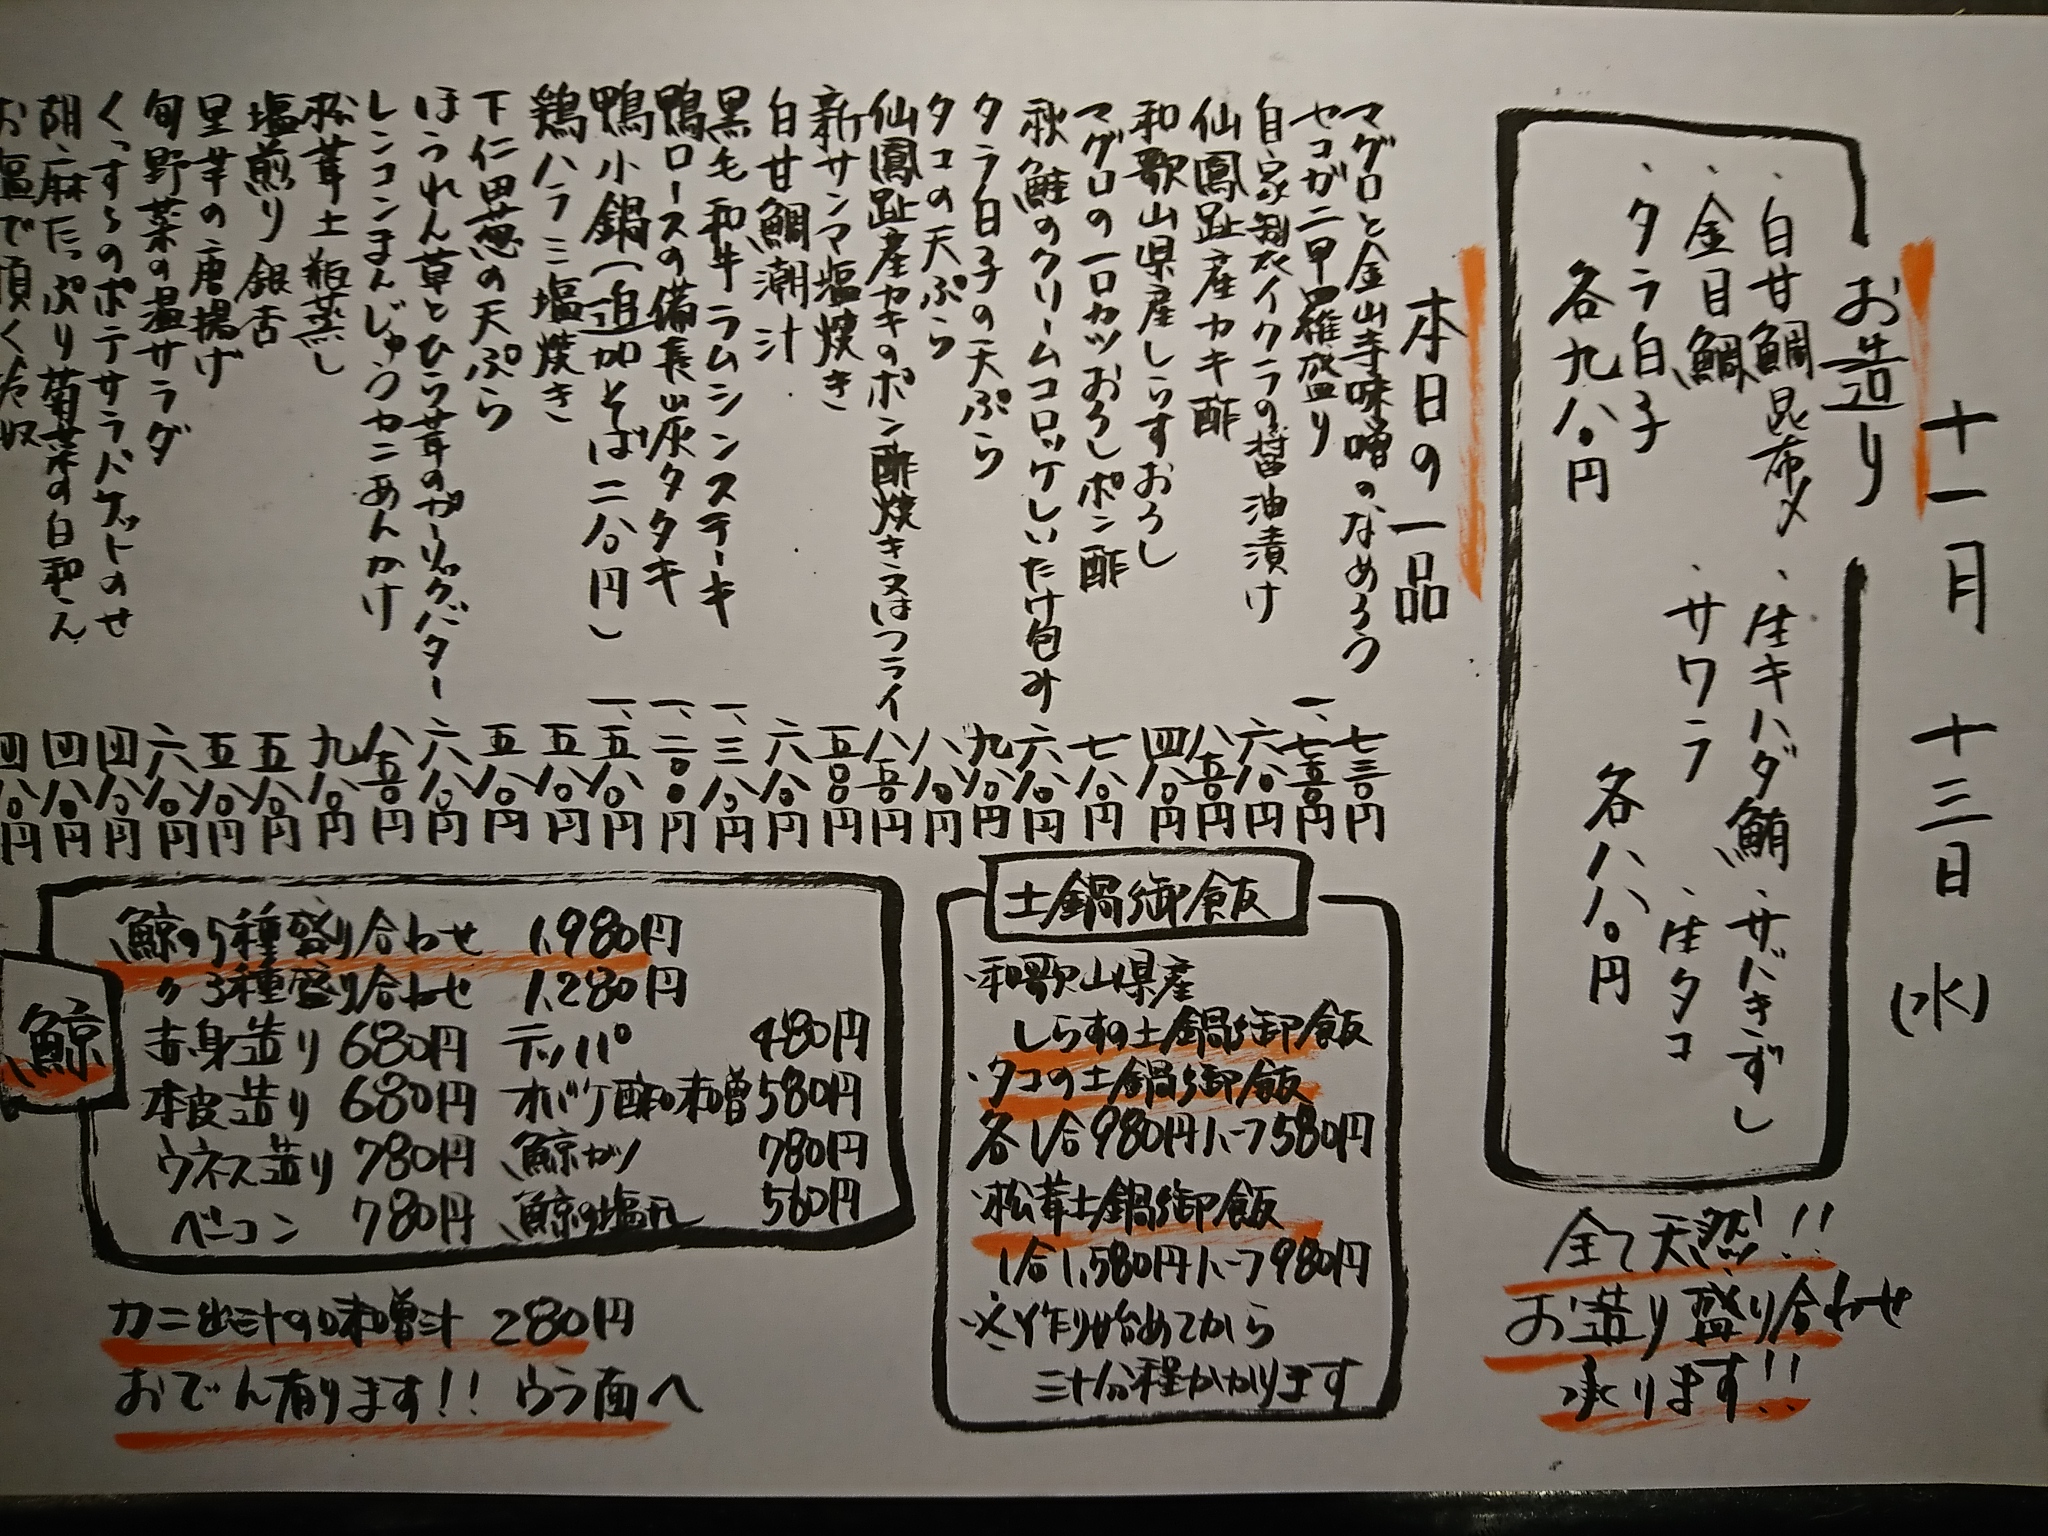 十一月 十三日 (水)
お造り
・白甘鯛昆布〆
・金目鯛
・タラ白子
各九八〇円
・生キハダ鮪
・サバきずし
・サワラ
・生タコ
各八八〇円
全て天然!!
お造り盛り合わせ
承ります!!
本日の一品
マグロと金山寺味噌のなめろう 七三〇円
セコガニ甲羅盛り 一、七五〇円
自家製イクラの醤油漬け 六八〇円
仙鳳趾産カキ酢 八五〇円
和歌山県産しらすおろし 四八〇円
マグロの一口カツおろしポン酢 七八〇円
秋鮭のクリームコロッケしいたけ包み 六八〇円
タラ白子の天ぷら 九八〇円
タコの天ぷら 八八〇円
仙鳳趾産カキのポン酢焼き又はフライ 八五〇円
新サンマ塩焼き 五〇〇円
白甘鯛潮汁 六八〇円
黒毛和牛ラムシンステーキ 一、三八〇円
鴨ロースの備長山灰タタキ 一、二〇〇円
鴨小鍋(追加そば二八〇円) 一、五八〇円
鶏ハラミ塩焼き 五八〇円
下仁田葱の天ぷら 五八〇円
ほうれん草とひら茸のガーリックバター 六八〇円
レンコンまんじゅうカニあんかけ 八五〇円
松茸土瓶蒸し 九八〇円
塩煎り銀杏 五八〇円
里芋の唐揚げ 五八〇円
旬野菜の温サラダ 六八〇円
くっすらのポテサラバケットのせ 四八〇円
胡麻たっぷり菊菜の白和え 四八〇円
お塩で頂く冷奴 四八〇円
土鍋御飯
・和歌山県産
しらすの土鍋御飯
・タコの土鍋御飯
各1合980円ハーフ580円
・松茸土鍋御飯
1合1,580円ハーフ980円
※作り始めてから
三十分程かかります
鯨
鯨の5種盛り合わせ 1,980円
〃3種盛り合わせ 1,280円
赤身造り 680円 テッパ 480円
本皮造り 680円 オバケ酢味噌 580円
ウネス造り 780円 鯨カツ 780円
ベーコン 780円 鯨の塩 560円
カニ出汁の味噌汁 280円
おでん有ります!! ウラ面へ